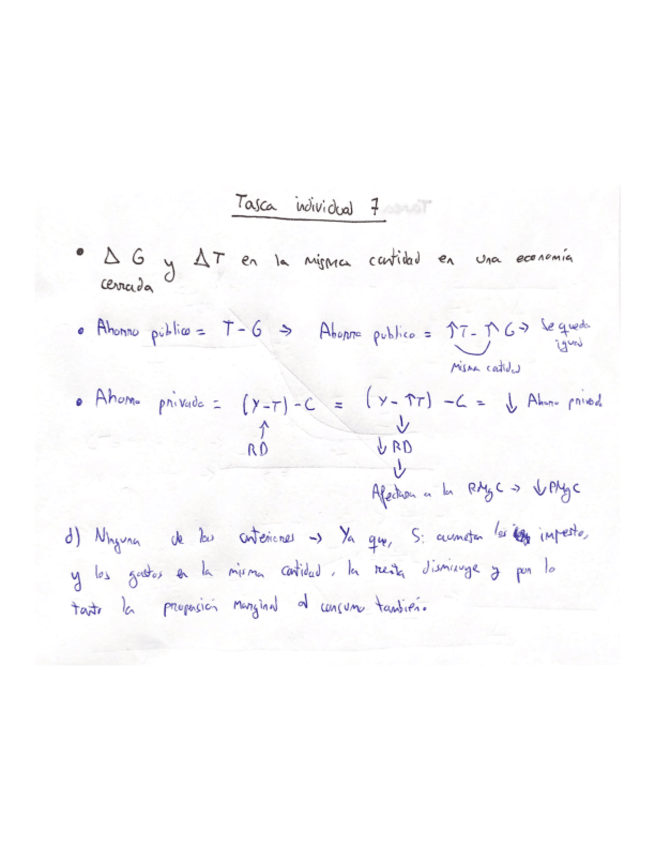 Tasca individual 7
• Δ G y ΔT en la misma cantidad en una economía
cerrada
• Ahorro público = T - G → Ahorro publico = ↑T - ↑G → Se queda
igual
Misma cantidad
• Ahorro privado = (Y-T) - C = (Y - ↑T) - C = ↓ Ahorro privado
↑ ↓
RD ↓ RD
↓
a la PMgC → ↓ PMgC
d) Ninguna de las anteriores → Ya que, Si aumentan los impestos,
y los gastos en la misma cantidad, la renta disminuye y por lo
tanto la propensión marginal al consumo también.